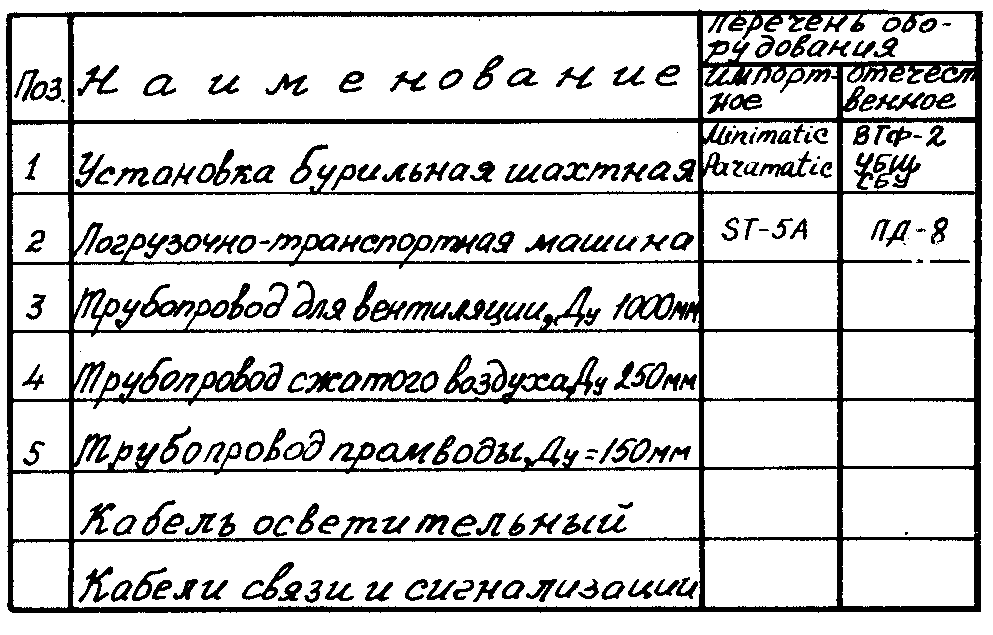 Поз. Наименование перечень обо-
рудования
импорт-
ное отечест
венное
1 Установка бурильная шахтная Minimatic
Paramatic ВТФ-2
УБШ
СБУ
2 Погрузочно-транспортная машина ST-5A ПД-8
3 Трубопровод для вентиляции, Ду 1000мм
4 Трубопровод сжатого воздуха, Ду 250мм
5 Трубопровод промводы, Ду=150мм
Кабель осветительный
Кабели связи и сигнализации